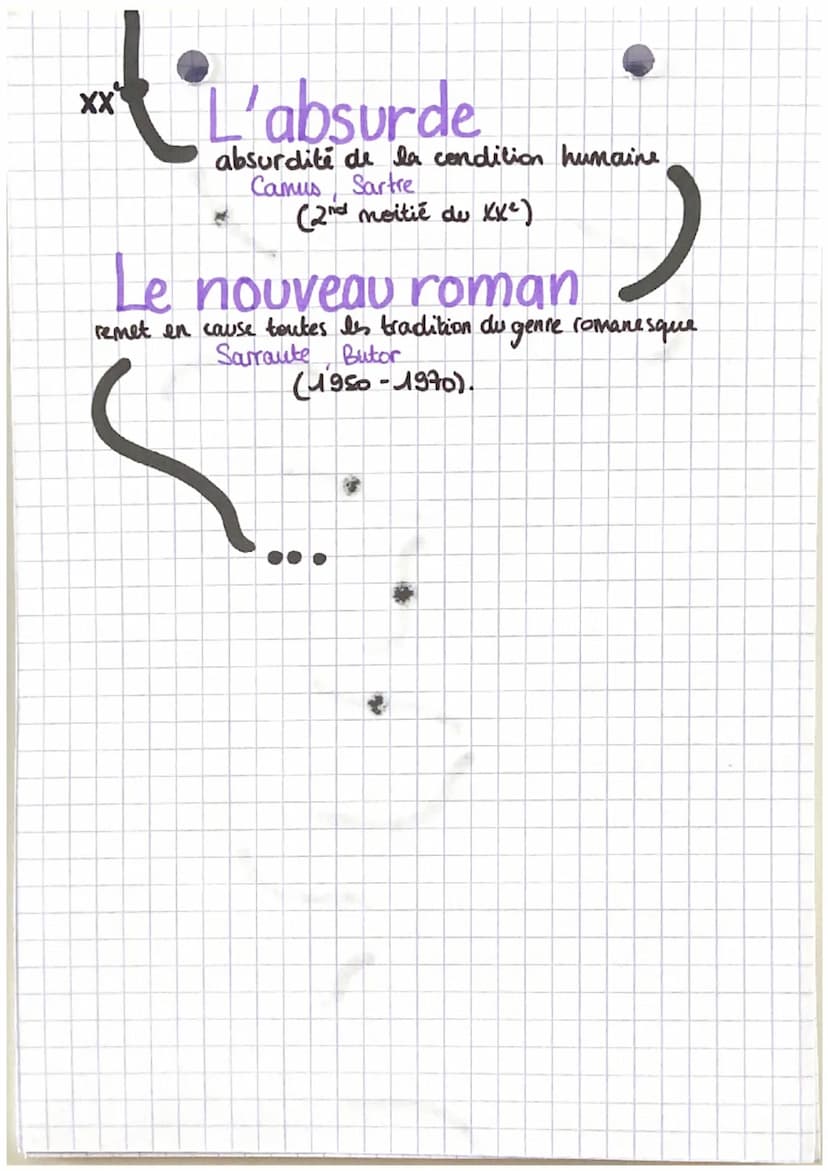 XXe
L'absurde
absurdité de la condition humaine
Camus, Sartre
(2nd moitié du XXe)
Le nouveau roman
remet en cause toutes les tradition du genre romanesque
Sarraute, Butor
(1950-1970).
...